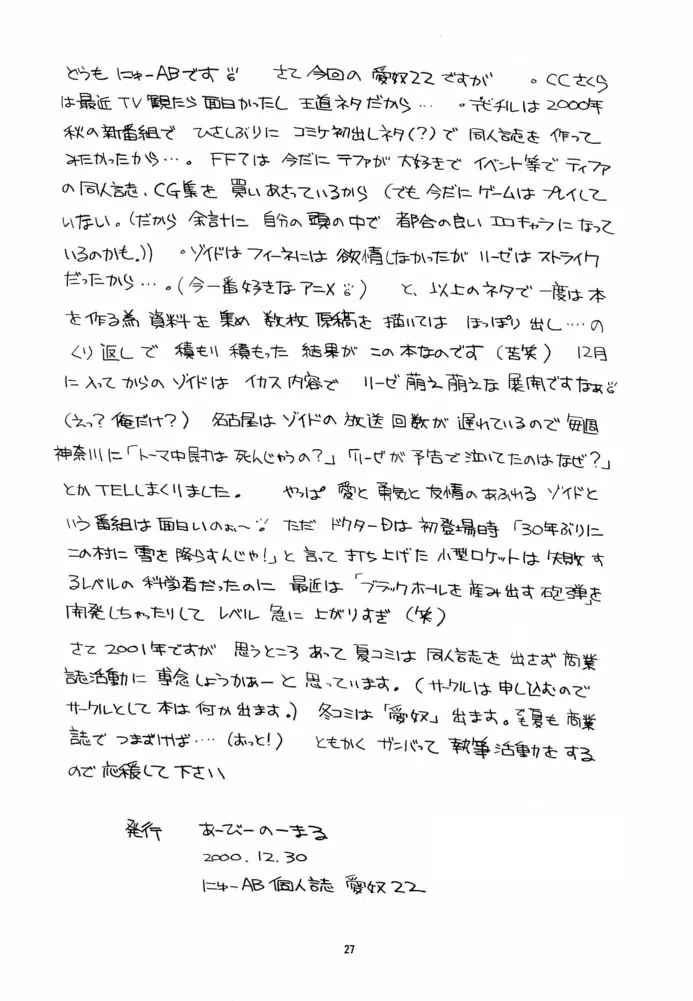 どうも にゅーABです さて今回の 愛奴22ですが 。CCさくら
は最近TV観たら面白かったし王道ネタだから…。デビチルは2000年
秋の新番組で ひさしぶりに コミケ初出しネタ(?)で同人誌を作って
みたかったから…。FF7は今だにティファが大好きでイベント等でティファ
の同人誌、CG集を買いあさっているから(でも今だにゲームはプレイして
いない。(だから余計に自分の頭の中で都合の良いエロキャラになって
いるのかも。)) 。ゾイドはフィーネには欲情しなかったがリーゼはストライク
だったから…。(今一番好きなアニメ) と、以上のネタで一度は本
を作る為資料を集め数枚原稿を描いてはほっぽり出し…の
くり返しで積もり積もった結果がこの本なのです(苦笑) 12月
に入ってからのゾイドはイカス内容でリーゼ萌え萌えな展開ですなぁ
(えっ?俺だけ?) 名古屋はゾイドの放送回数が遅れているので毎週
神奈川に「トーマ中尉は死んじゃうの?」「リーゼが予告で泣いてたのはなぜ?」
とかTELしまくりました。 やっぱ愛と勇気と友情のあふれるゾイドと
いう番組は面白いのぉ〜 ただドクターDは初登場時「30年ぶりに
この村に雪を降らすんじゃ!」と言って打ち上げた小型ロケットは失敗す
るレベルの科学者だったのに最近は「ブラックホールを産み出す砲弾」を
開発しちゃったりしてレベル急に上がりすぎ(笑)
さて2001年ですが思うところあって夏コミは同人誌を出さず商業
誌活動に専念しようかあーと思っています。(サークルは申し込むので
サークルとして本は何か出ます。)冬コミは「愛奴」出ます。でも夏も商業
誌でつまずけば…(おっと!) ともかくガンバって執筆活動をする
ので応援して下さい
発行 あーびーのーまる
2000.12.30
にゅーAB個人誌 愛奴22
27